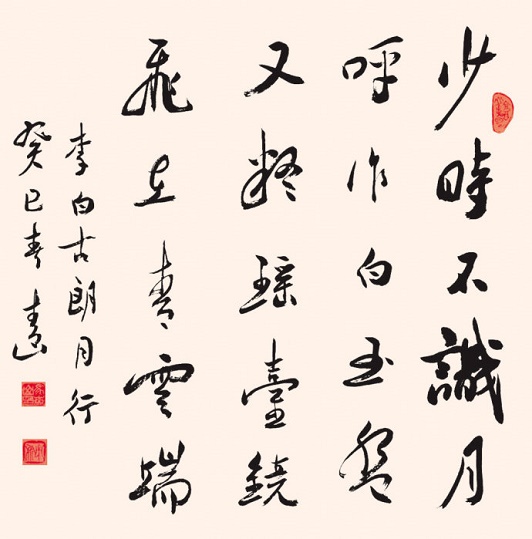 少時不識月
呼作白玉盤
又疑瑶臺鏡
飛在青雲端
李白古朗月行
癸巳春